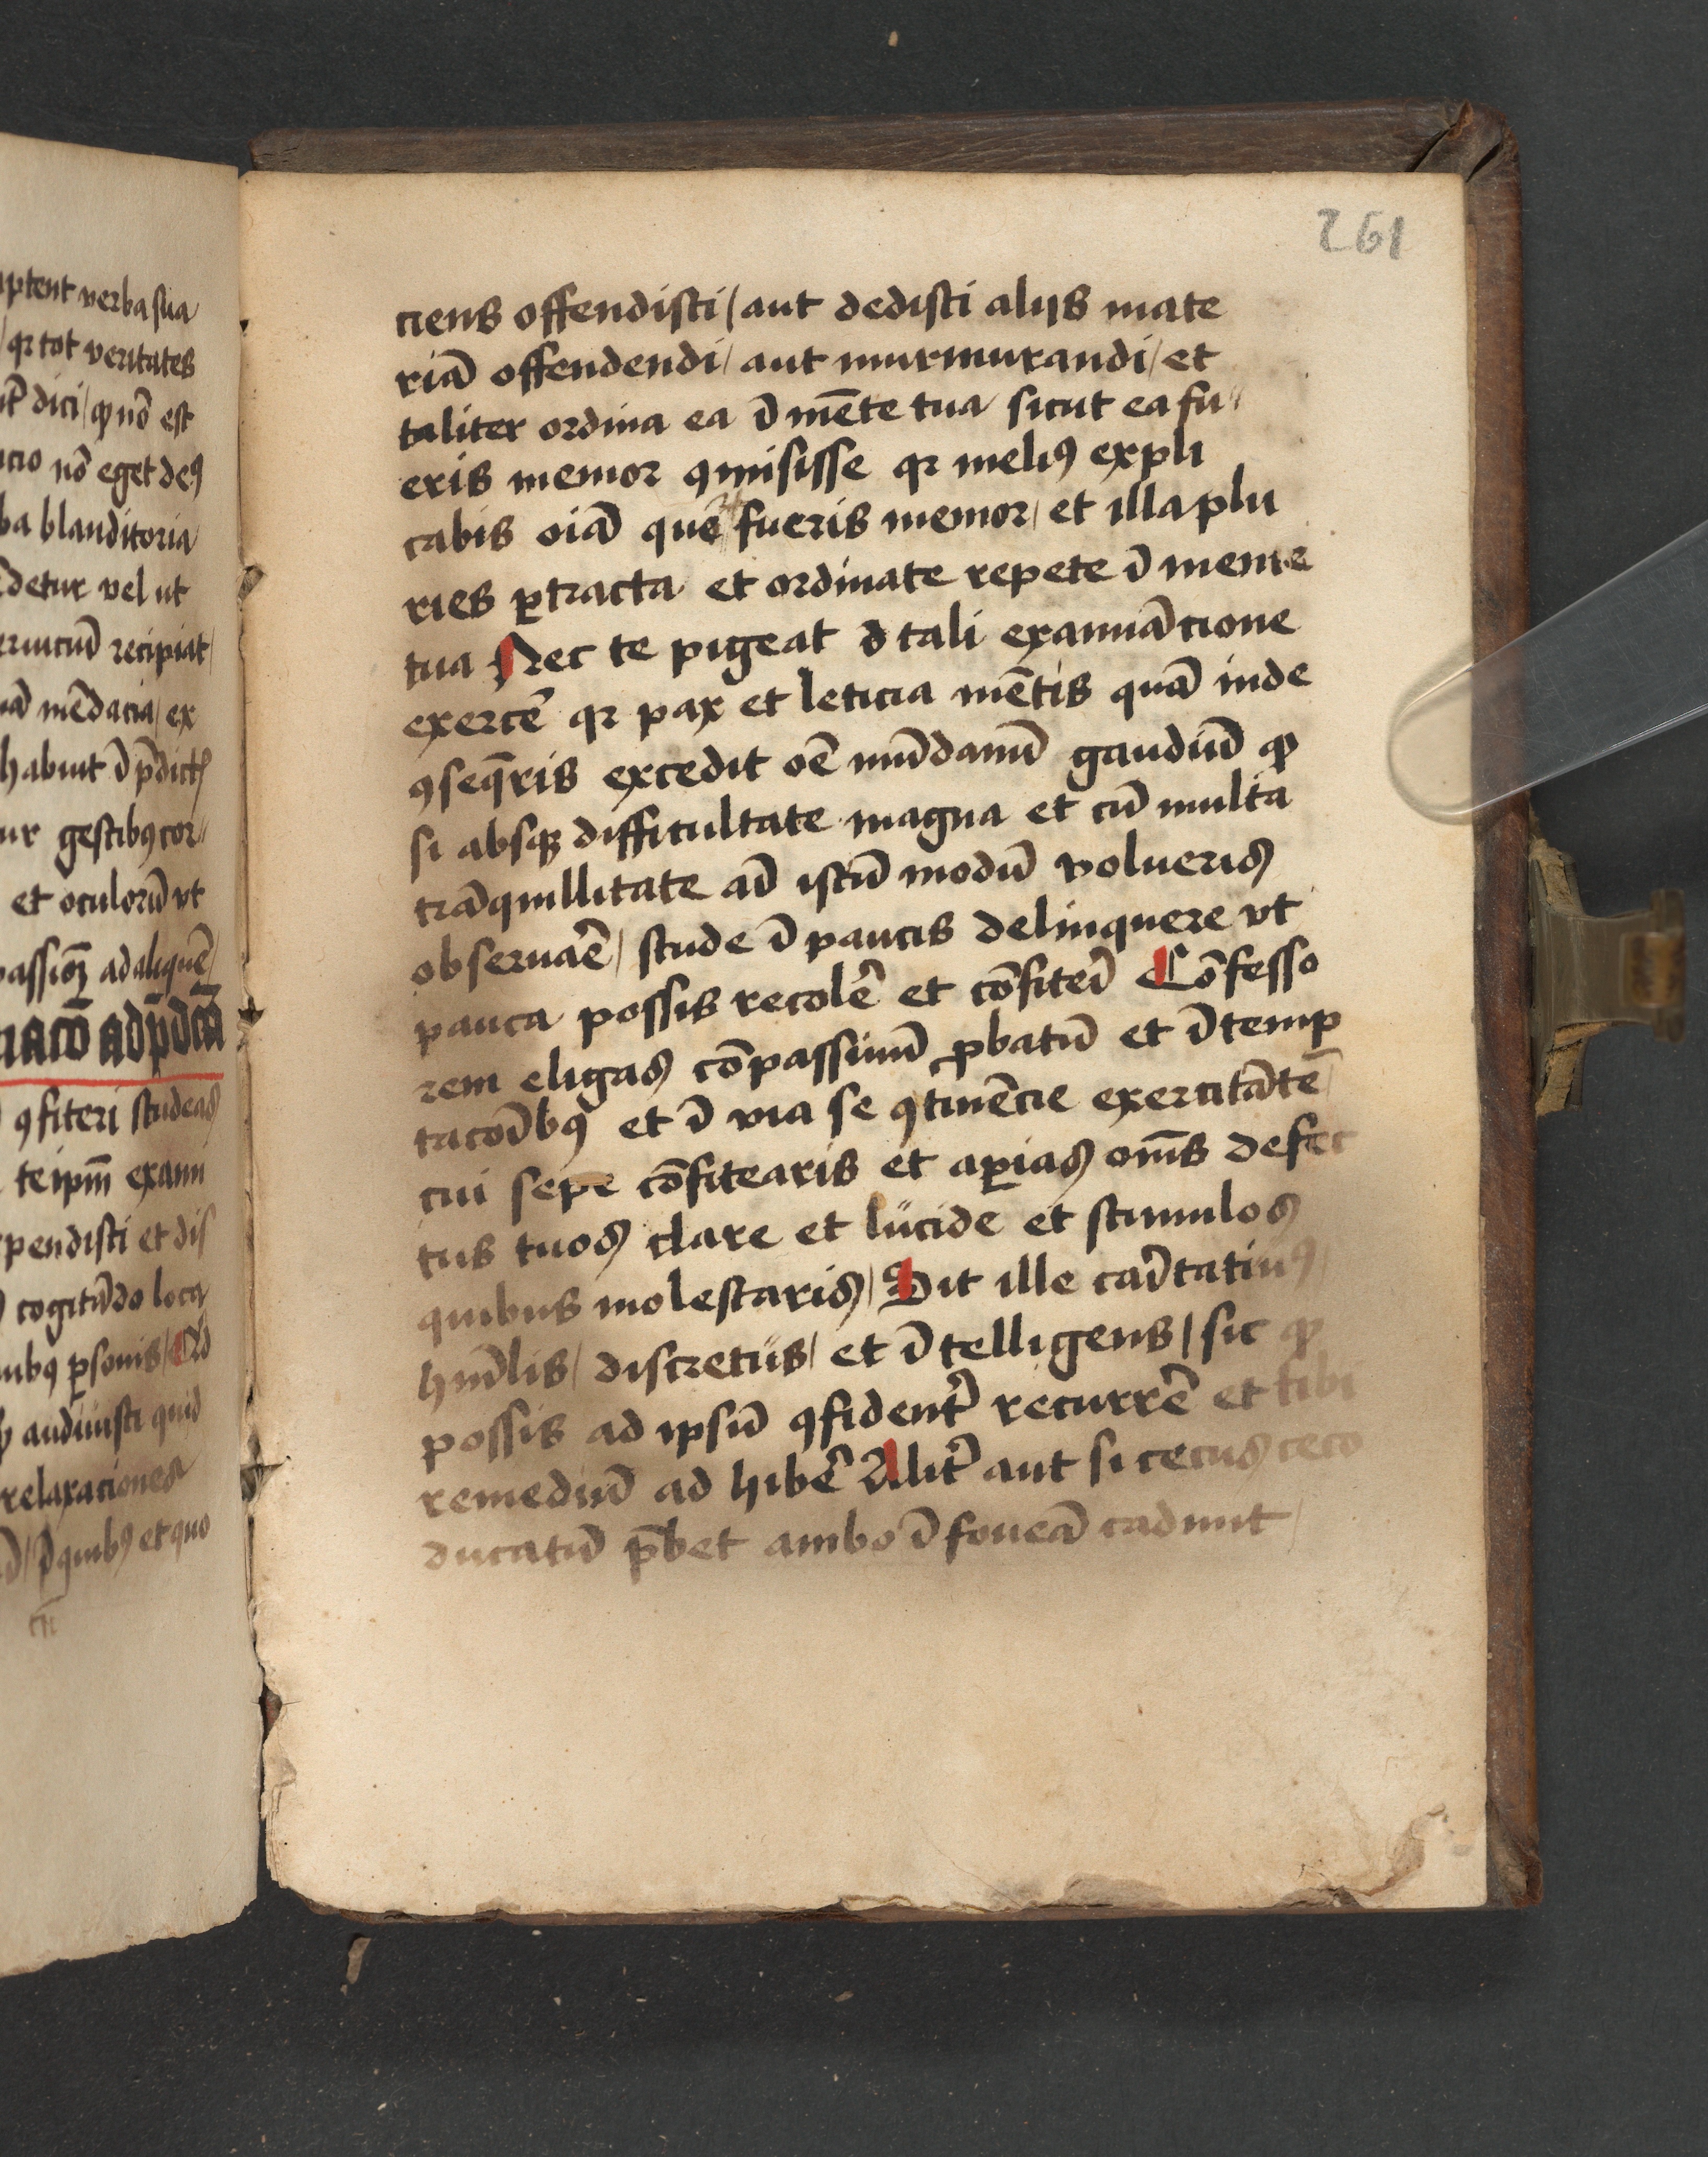 aptent verba sua
/ qꝛ tot veritates
dici / ꝙ nō est
nō eget deꝰ
ba blanditoria
detur vel ut
recipiat /
mēdacia / ex
habuit
gestibꝰ cor„
et oculorū vt
ad aliquē /
ꝯfiteri studeas
te ipm̄ exami
pendisti et dis
cogitādo loca
ꝑsonis /
audiuisti quid
relaxaciones
et quo
261
ciens offendisti / aut dedisti alijs mate
riā offendendi / aut murmurandi / et
taliter ordina ea ī mēte tua sicut ea fu„
eris memor ꝯmisisse qꝛ meliꝰ expli
cabis oīa que fueris memor / et illa plu
ries ꝑtracta et ordinate repete ī mente
tua Nec te pigeat d̄ tali examinācione
exercē qꝛ pax et leticia mētis quā inde
ꝯseq̄ris excedit oē mūdanū gaudiū ꝙ
si absqꝫ difficultate magna et cū multa
trāquillitate ad istū modū volueris
obseruaē / stude ī paucis delinquere vt
pauca possis recolē et cōfiterī Cōfesso
rem eligas cōpassiuū ꝓbatū et ī temp
tacōībꝰ et ī via se ꝯtinēcie exercitātē /
cui sepe cōfitearis et aꝑias om̄s defec
tus tuos clare et lucide et stimulos
quibus molestaris / Sit ille cāritatiuꝰ /
hūīlis / discretus / et ītelligens / sic ꝙ
possis ad ipsū ꝯfident̄ recurrē et tibi
remediū ad hibē Alit̄ aut si cecus ceco
ducatū p̄bet ambo ī foueā cadunt /